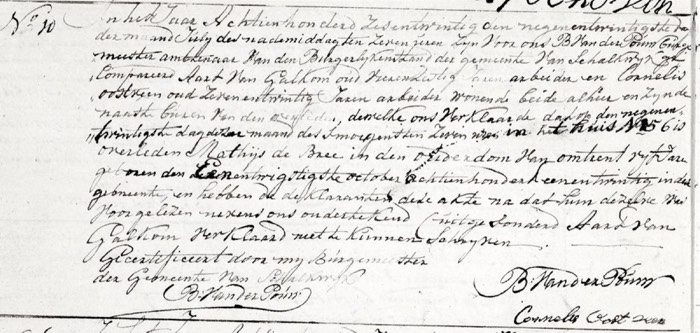 No 30 In het Jaar Achtien honderd Zesentwintig den negenentwintigste da
der maand July des nademiddags ten Zeven uren Zyn Voor ons B. Vander Pouw Burge
meester ambtenaar Van den Burgerlyken stand der gemeente Van Schalkwyk
Compareerd Aart Van Galkom oud Jaren arbeider en Cornelis
oostveen oud Zevenentwintig Jaren arbeider wonende beide alhier en Zynde
naaste buren Van den dewelke ons Verklaarde dat op den negenen
twintigste dag dezer maand des smorgens ten Zeven uren in het huis No 56 is
overleden Mathijs de Bree in den ouderdom Van omtrent vyf Jare
geboren den Eenentwingtigste october achtienhonderd eenentwintig in deze
gemeente en hebben de deklaranten deze akte na dat hun dezelve was
Voorgelezen nevens ons onderteekend uitgesonderd Aard Van
Galkom Verklaard niet te kunnen Schryven
Gecertificeert door my Burgemeester
der Gemeente Van Schalkwyk
B. Vander Pouw
B. Vander Pouw
Cornelis Oostveen